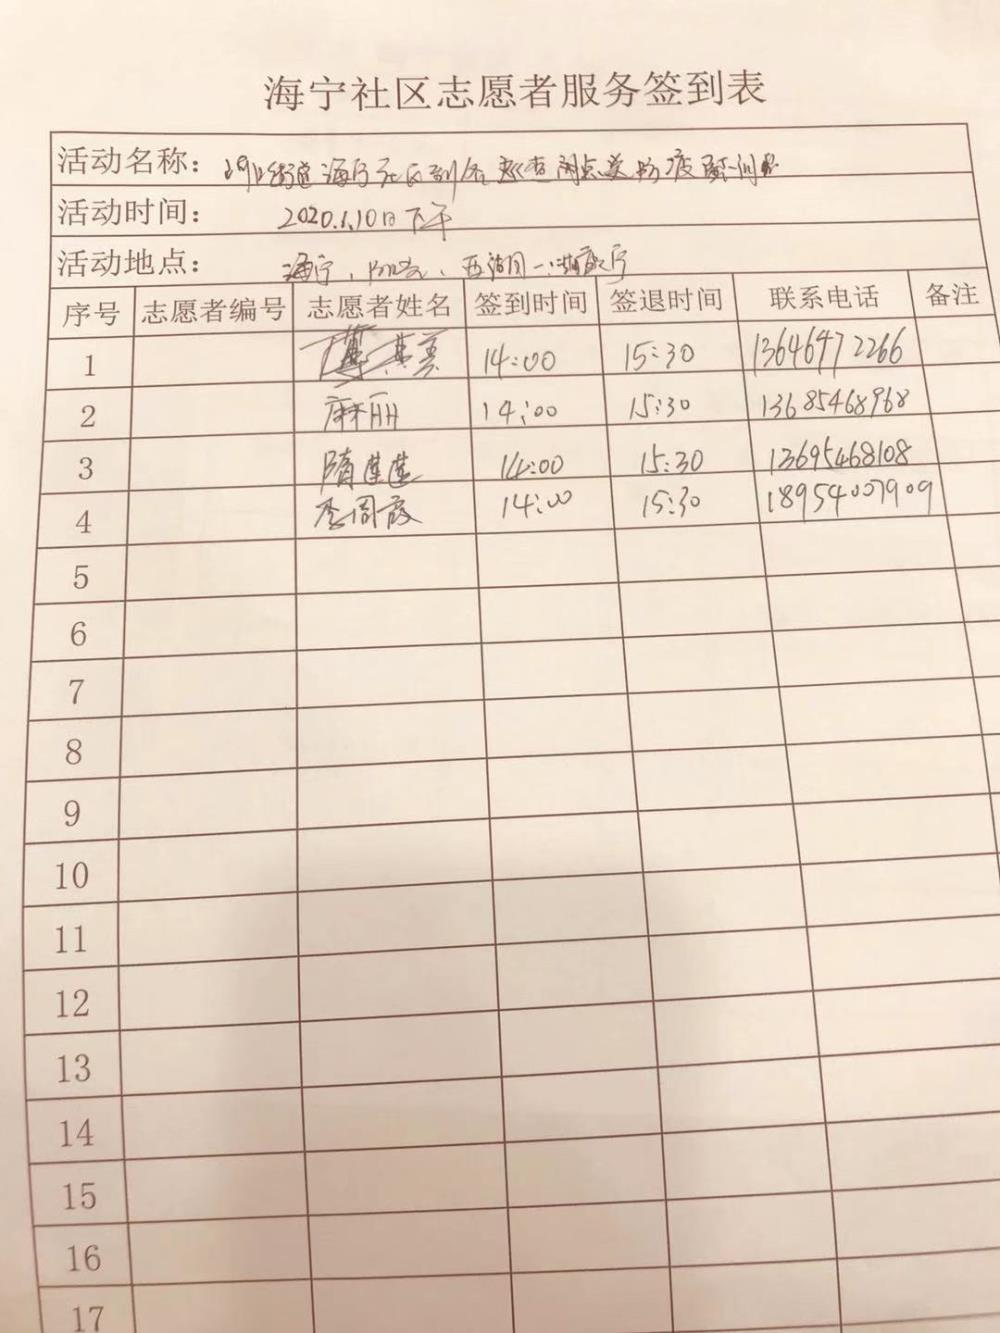 海宁社区志愿者服务签到表
活动名称：街道海宁社区 巡查 防疫
活动时间：2020.1.10日下午
活动地点：海宁、
序号 志愿者编号 志愿者姓名 签到时间 签退时间 联系电话 备注
1 14:00 15:30 13646472266
2 麻丽 14:00 15:30 13685468968
3 隋莲莲 14:00 15:30 13695468108
4 李周霞 14:00 15:30 18954007909
5
6
7
8
9
10
11
12
13
14
15
16
17